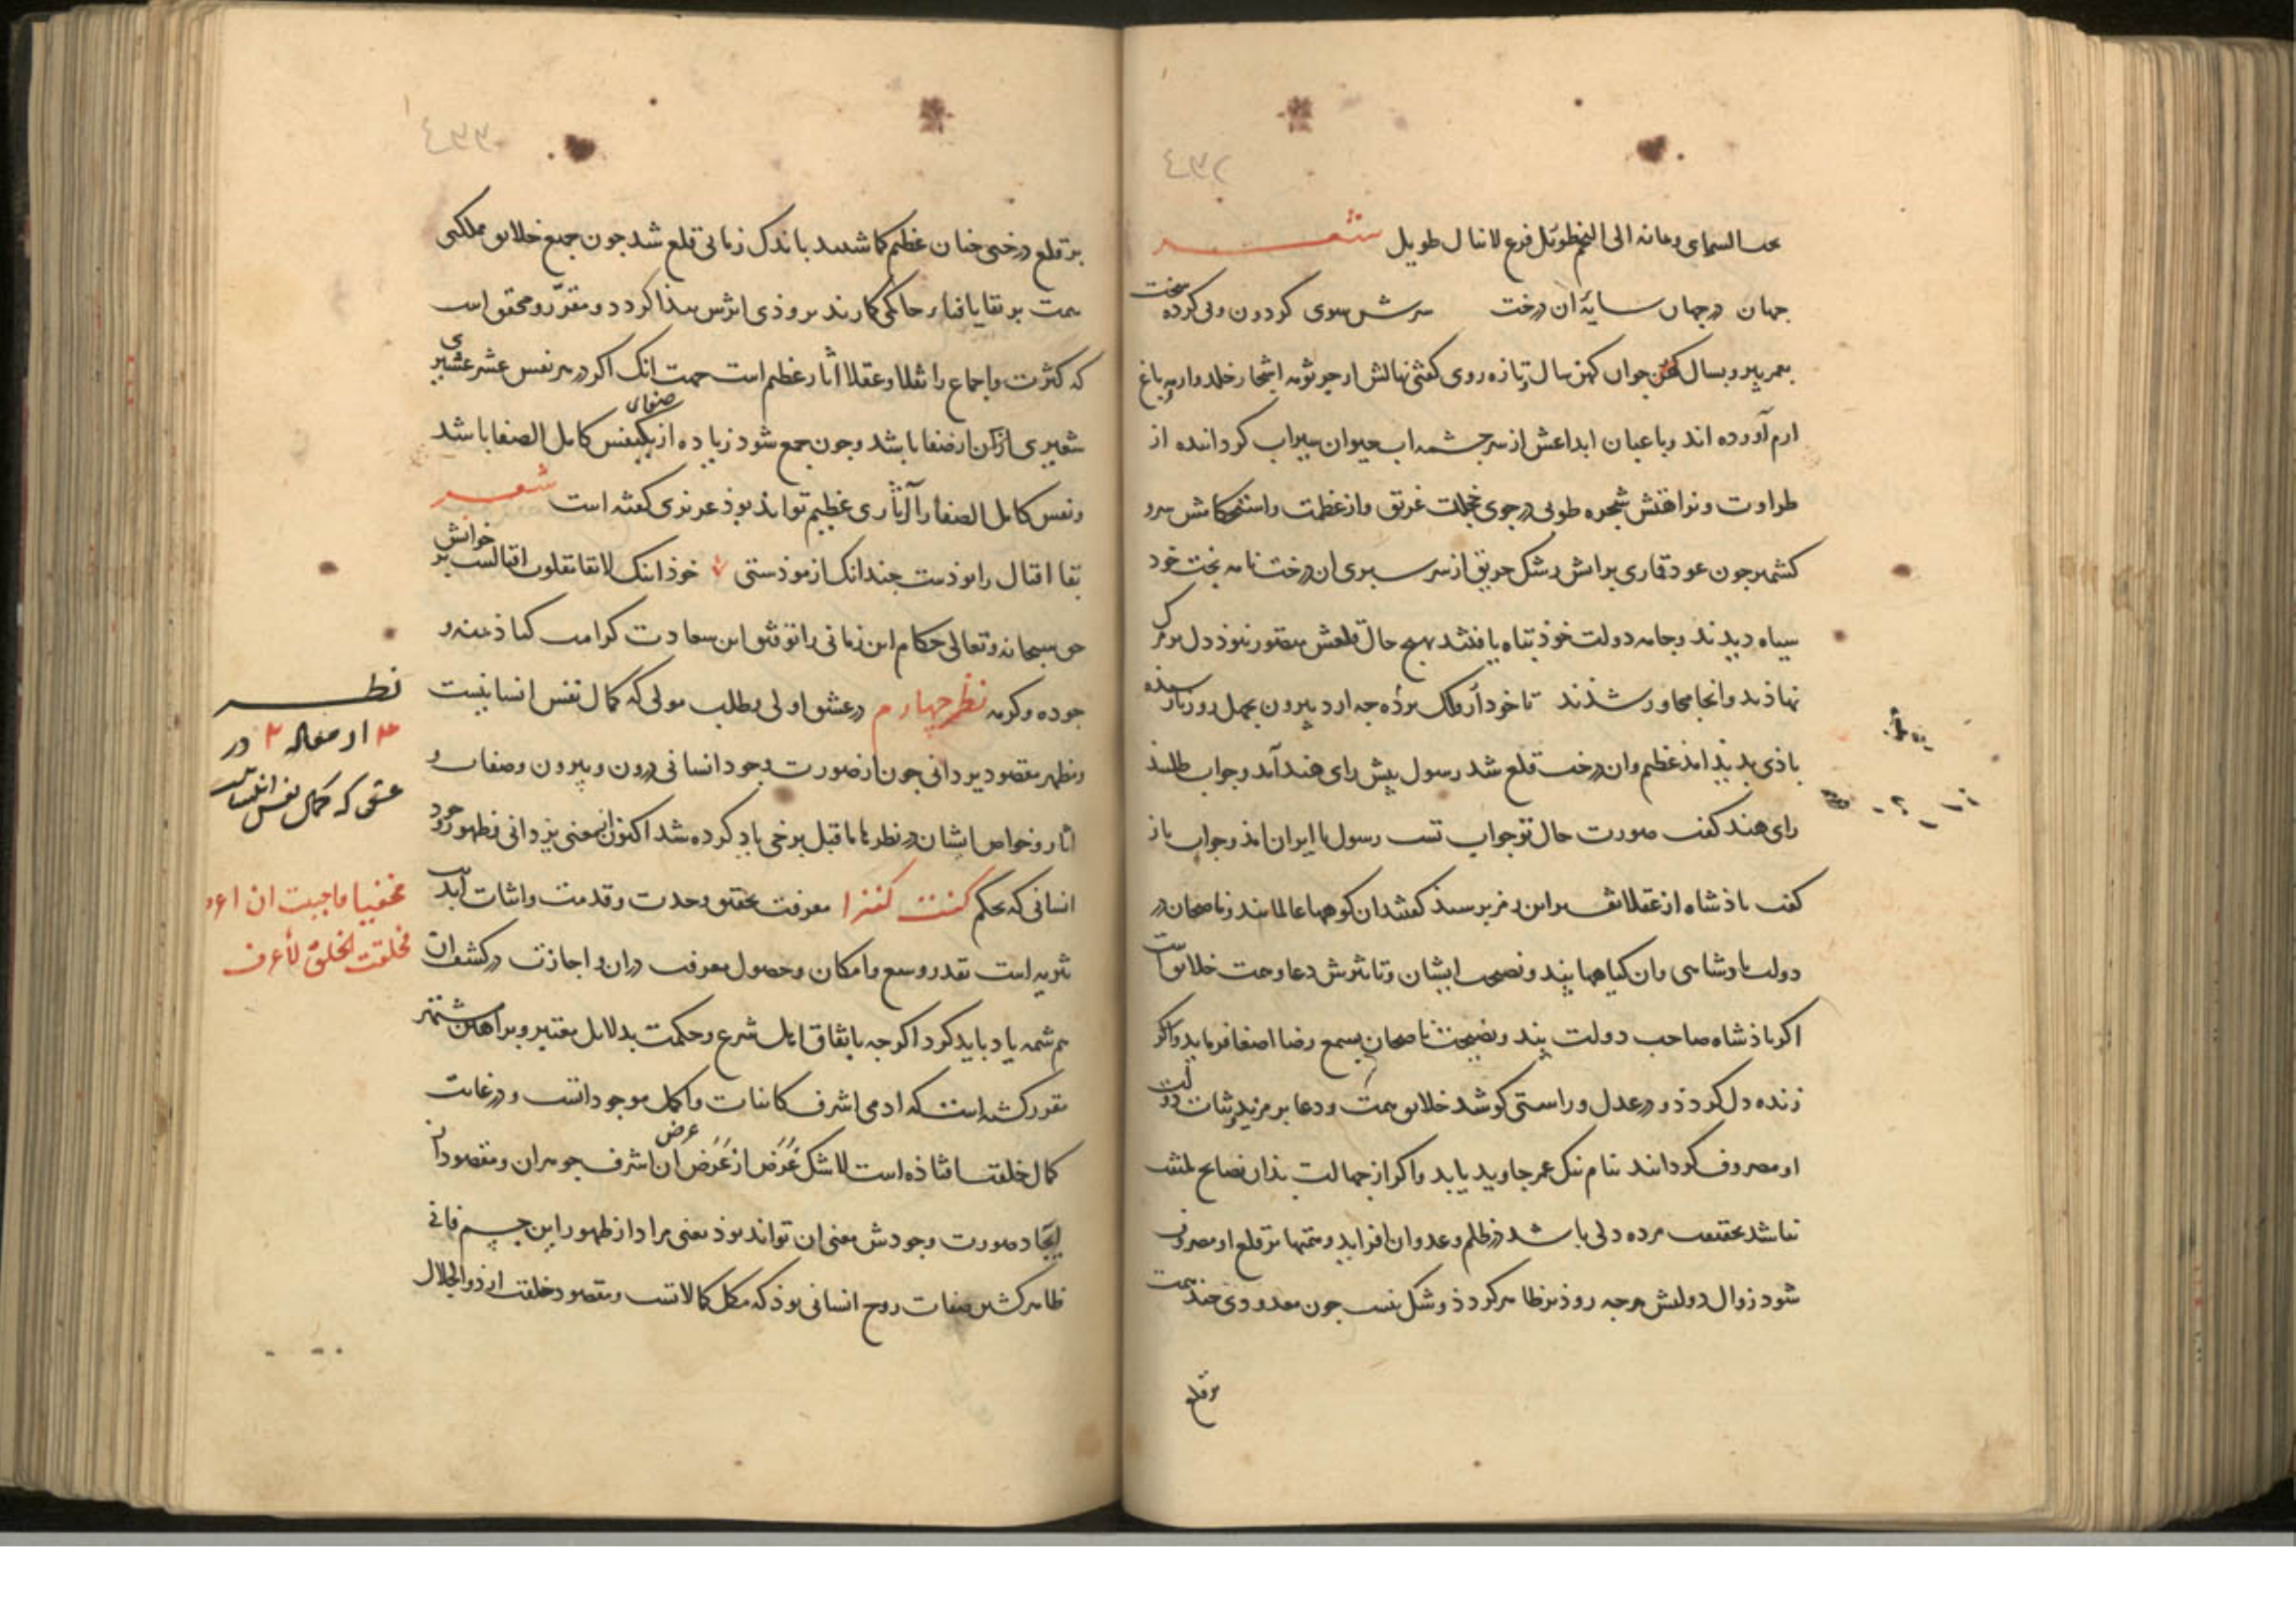 الی النجم طویل فرع لاینال طویل شعر
جهان در جهان سایهٔ آن درخت سرش سوی کردون و پی کرده سخت
بعمر پیر و بسال جوان کهن سال تازه روی کفتی نهالش از جرثومه اشجار خلد وار به باغ
ارم آورده اند و باعبان ابداعش از سر چشمه اب حیوان سیراب کردانده از
طراوت و نزاهتش شجره طوبی در جوی خجلت غریق و از عظمت و استحکامش سرو
کشمر چون عود قماری برآتش رشک حریق از سر سبزی ان درخت نامه بخت خود
سیاه دیدند و جامه دولت خوذ تباه یافتند بهیچ حال قلعش متصور نبوذ دل بر مرک
نهاذند و انجا مجاور شذند تا خود از فلک برده چه ارد بیرون بعمل روز
باذی بدید امد عظیم و ان درخت قلع شد رسول پیش رای هند آمد و جواب طلبید
رای هند کفت صورت حال تو جواب تست رسول با ایران امذ و جواب باز
کفت باذشاه از عقلا این رمز برسید کفتند ان کوهها عالمانند و ناصحان در
دولت بادشاهی و ان کیاهها پند و نصیحت ایشان و تاثیرش دعا و همت خلایق است
اکر باذشاه صاحب دولت پند و نصیحت ناصحان بسمع رضا اصغا فرماید و اکر
زنده دل کردذ و در عدل و راستی کوشد خلایق همت و دعا بر مزید و ثبات دولت
او مصروف کردانند بنام نیک عمر جاوید یابد و اکر از جهالت بدان نصایح ملتفت
نباشد بحقیقت مرده دلی باشد در ظلم و عدوان افزاید و همتها بر قلع او مصروف
شود زوال دولتش هرچه روذتر ظاهر کردذ و شک نیست چون معدودی چند همت
بر قلع
بر قلع درختی چنان عظیم کماشتند باندک زمانی قلع شد چون جمیع خلایق مملکتی
همت بر بقا یا فنا حاکمی کمارند بروذی اثرش پیدا کردد و مقرّر و محقق است
که کثرت و اجماع را نقلا و عقلا اثار عظیم است جهت انک اکر در هر نفس عشر عشیر
شعیری از صفا باشد و چون جمع شود زیاده از صفای یکنفس کامل الصفا باشد
و نفس کامل الصفا را آثاری عظیم تواند بوذ عزیزی کفته است شعر
بقا اقبال را بوذست چندانک ازموذستی خوذ اینک لابقا مقلوب اقبالست بر خوانش
حق سبحانه و تعالی حکام این زمانی را توفیق این سعادت کرامت کناذ بمنه و
جوده و کرمه نظر چهارم در عشق اولی و طلب مولی که کمال نفس انسانیست
و مظهر مقصود یزدانی چون از صورت وجود انسانی درون و بیرون و صفات و
اثار و خواص ایشان در نظر ما قبل برخی یاد کرده شد اکنون از معنی یزدانی و ظهور وجود
انسانی که بحکم کنت کنزا معرفت تحقیق وحدت و قدمت و اثبات ابدیت
ثریه است بقدر وسع و امکان و حصول معرفت دران و اجازت در کشف ان
هم شمه یاد باید کرد اکر چه باتفاق اهل شرع و حکمت بدلایل معتبر و براهین مشتهر
مقرر کشته است که ادمی اشرف کاینات و اکمل موجوداتست و در غایت
کمال خلقت افتاذه است لاشک غرض از عرض ان اشرف جوهران و مقصود از
ایجاد صورت وجودش معنی ان تواند بوذ یعنی مراد از ظهور این جسم فانی
ظاهر کشتن صفات روح انسانی بوذ که مکمل کمالاتست و مقصود خلقت از ذو الجلال
نظر
۴ از مقاله ۲ در
عشق که کمال نفس انسانیست
مخفیا فاحببت ان اعرف
فخلقت الخلق لأعرف